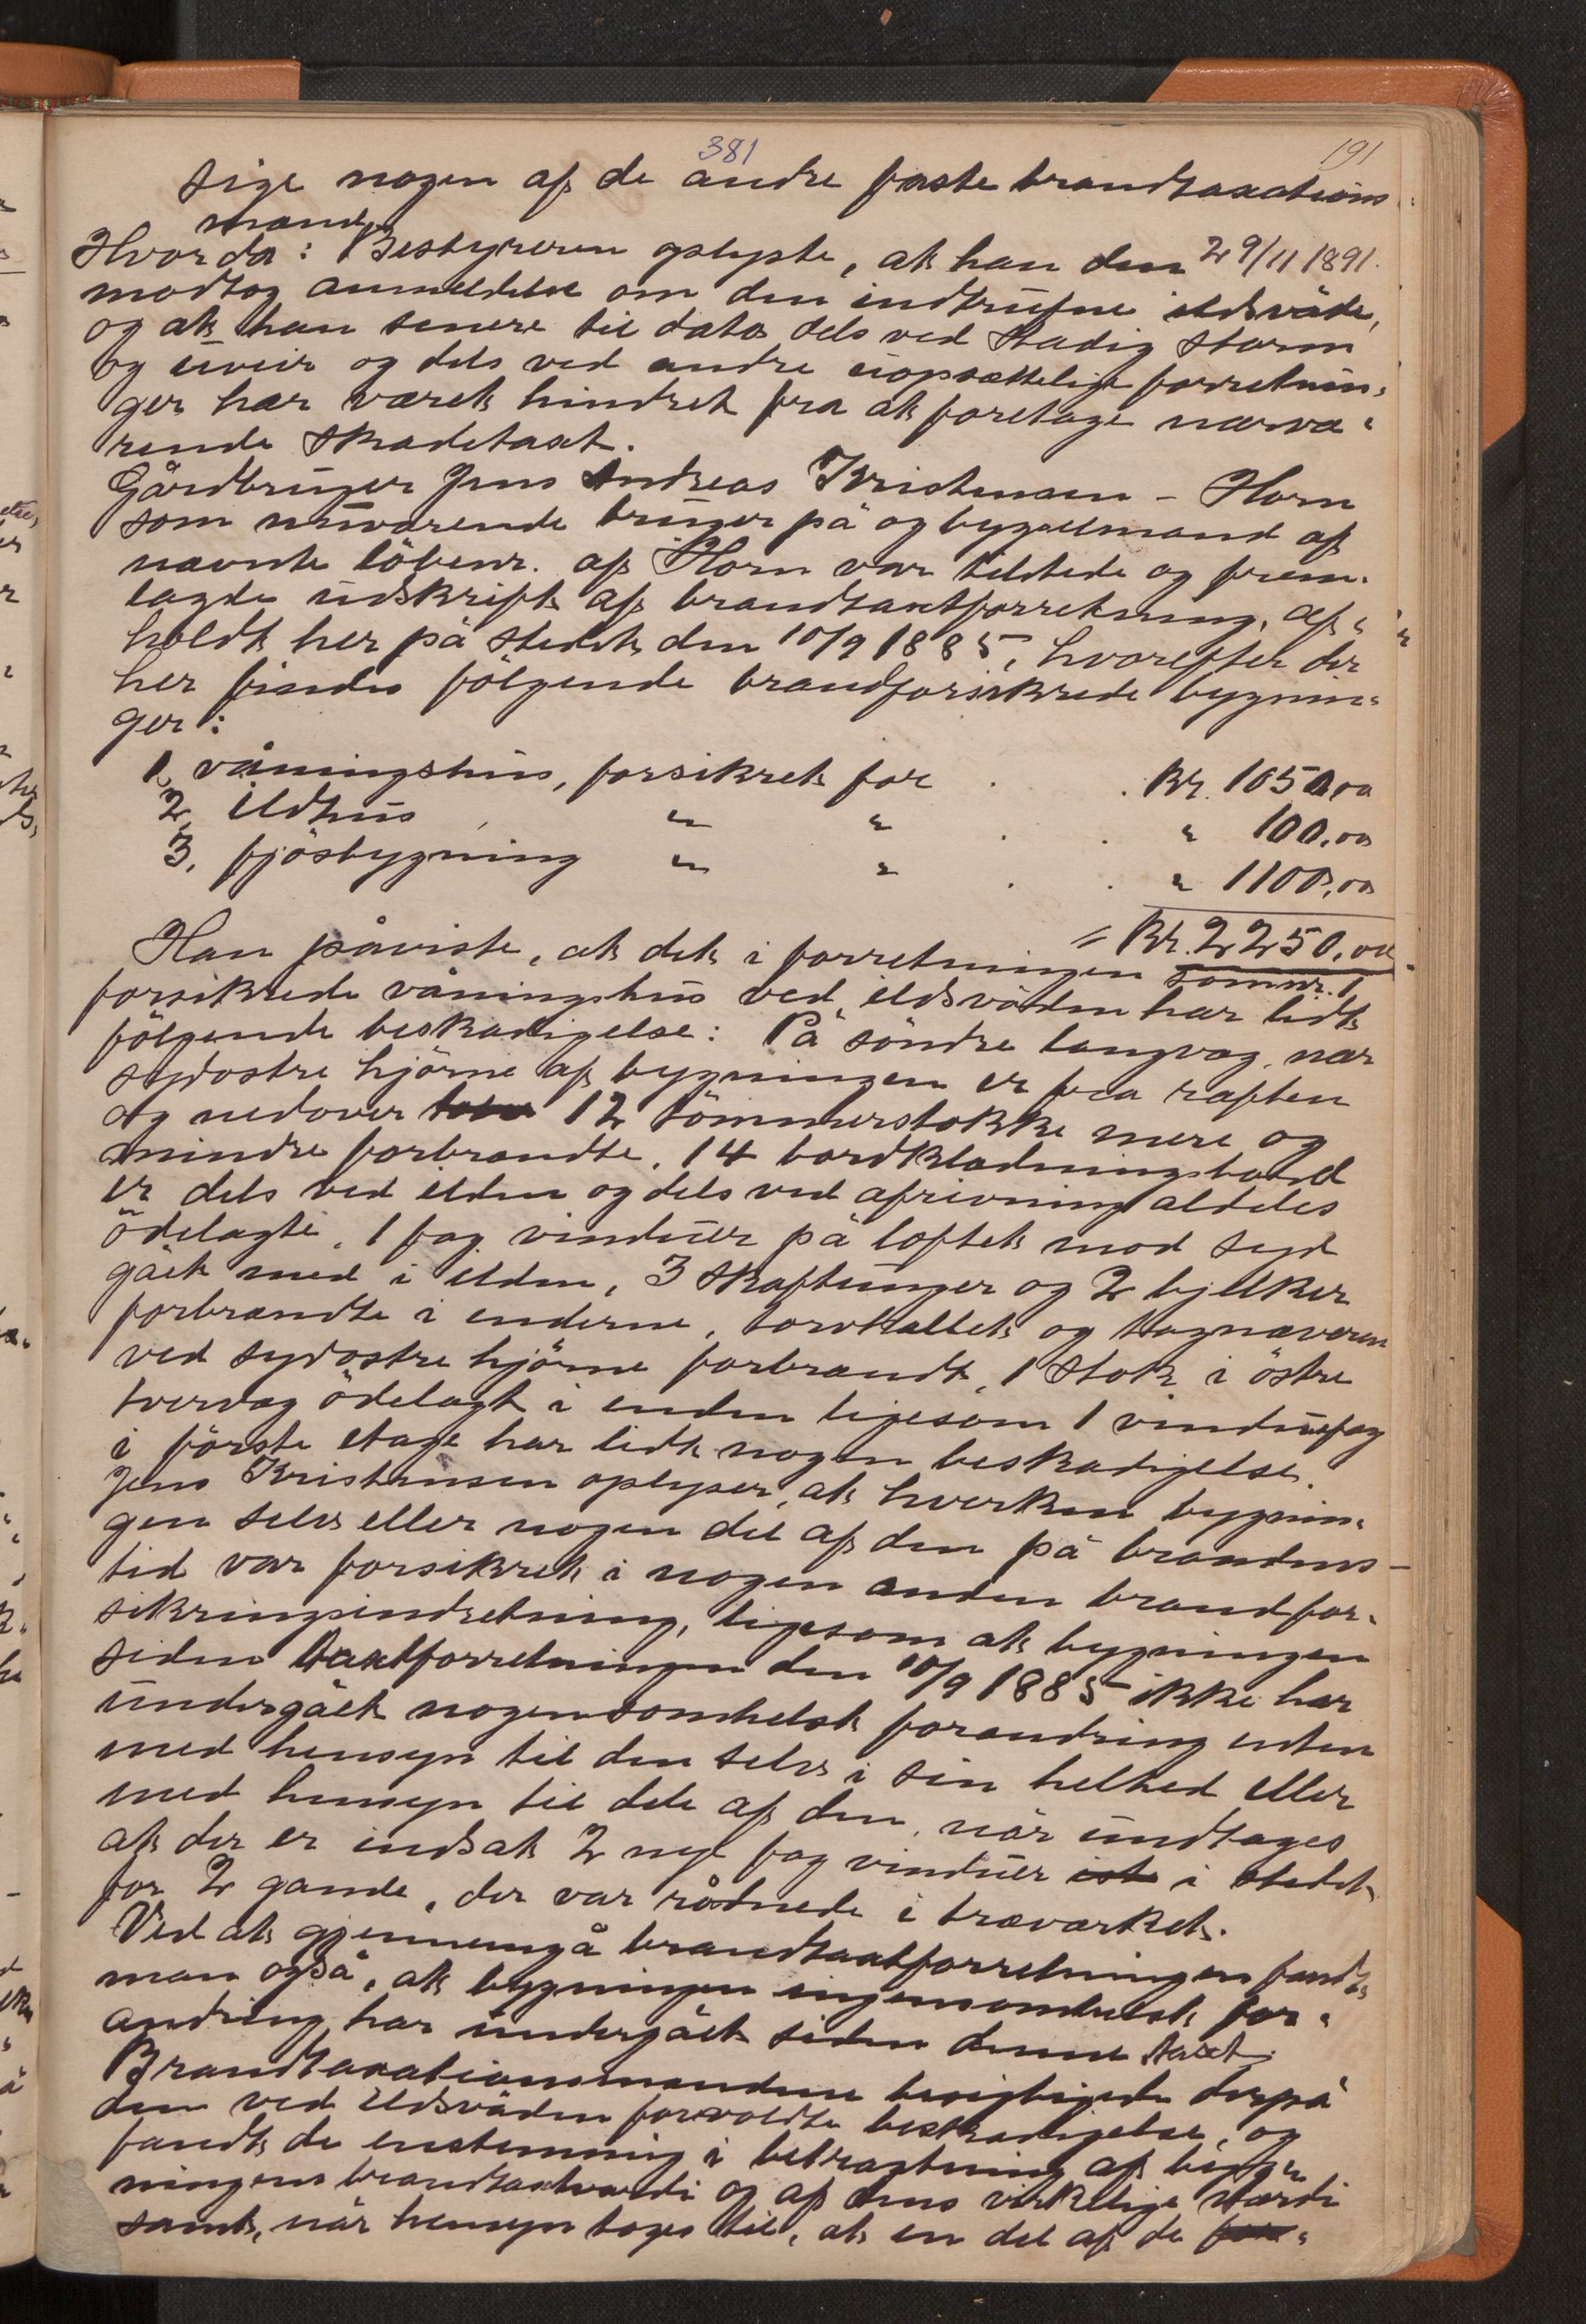 381
191
sige nogen af de andre faste brandtaxations
mænd.
Hvorda: Bestyreren oplyste, at han den 29/11 1891.
modtog anmeldelse om den indtrufne ildsvåde,
og at han senere til dato dels ved stadig storm
og üveir og dels ved andre üopsættelige forretnin-
ger har været hindret fra at foretage nærvæ-
rende skadetaxt.
Gårdbrüger Jens Andreas Kristensen - Horn
som nüværende brüger på og bygselmand af
nævnte löbenr. af Horn var tilstede og frem-
lagde üdskrift af brandtaxtforretning, af-
holdt her på stedet den 10/9 1885, hvorefter der
her findes fölgende brandforsikrede bygnin-
ger:
1, våningshüs, forsikret for . . Kr. 1050,00
2, ildhüs , " " . . " 100,00
3, fjösbygning " " . . " 1100,00
= Kr. 2250,00
Han påviste, at det i forretningen som nr. 1
forsikrede våningshüs ved ildsvåden har lidt
fölgende beskadigelse: På söndre langvæg, nær
sydostre hjörne af bygningen er fra raften
og nedover 12 tömmerstokke mere og
mindre forbrændte, 14 bordklædningsbord
er dels ved ilden og dels ved afrivning aldeles
ödelagte, 1 fag vindüer på loftet mod syd
gået med i ilden, 3 skaftünger og 2 bjelker
forbrændte i enderne, torvhaldet og tagnæveren
ved sydostre hjörne forbrændt, 1 stok i östre
tvervæg ödelagt i enden ligesom 1 vindüefag
i förste etage har lidt nogen beskadigelse.
Jens Kristensen oplyser, at hverken bygnin-
gen selv eller nogen del af den på brandens
tid var forsikret i nogen anden brandfor-
sikringsindretning, ligesom at bygningen
siden taxtforretningen den 10/9 1885 ikke har
ündergået nogensomhelst forandring enten
med hensyn til den selv i sin helhed eller
med hensyn til dele af den, når ündtages
at der er indsat 2 nye fag vindüer i stedet
for 2 gamle, der var rådnede i træværket.
Ved at gjennemgå brandtaxtforretningen fandt
man også, at bygningen ingensomhelst for-
andring har ündergået siden denne taxt.
Brandtaxationsmændene besigtigede derpå
den ved ildsvåden forvoldte beskadigelse, og
fandt de enstemmig i betragtning af byg-
ningens brandtaxtværdi og af dens virkelige værdi
samt, når hensyn toges til, at en del af de